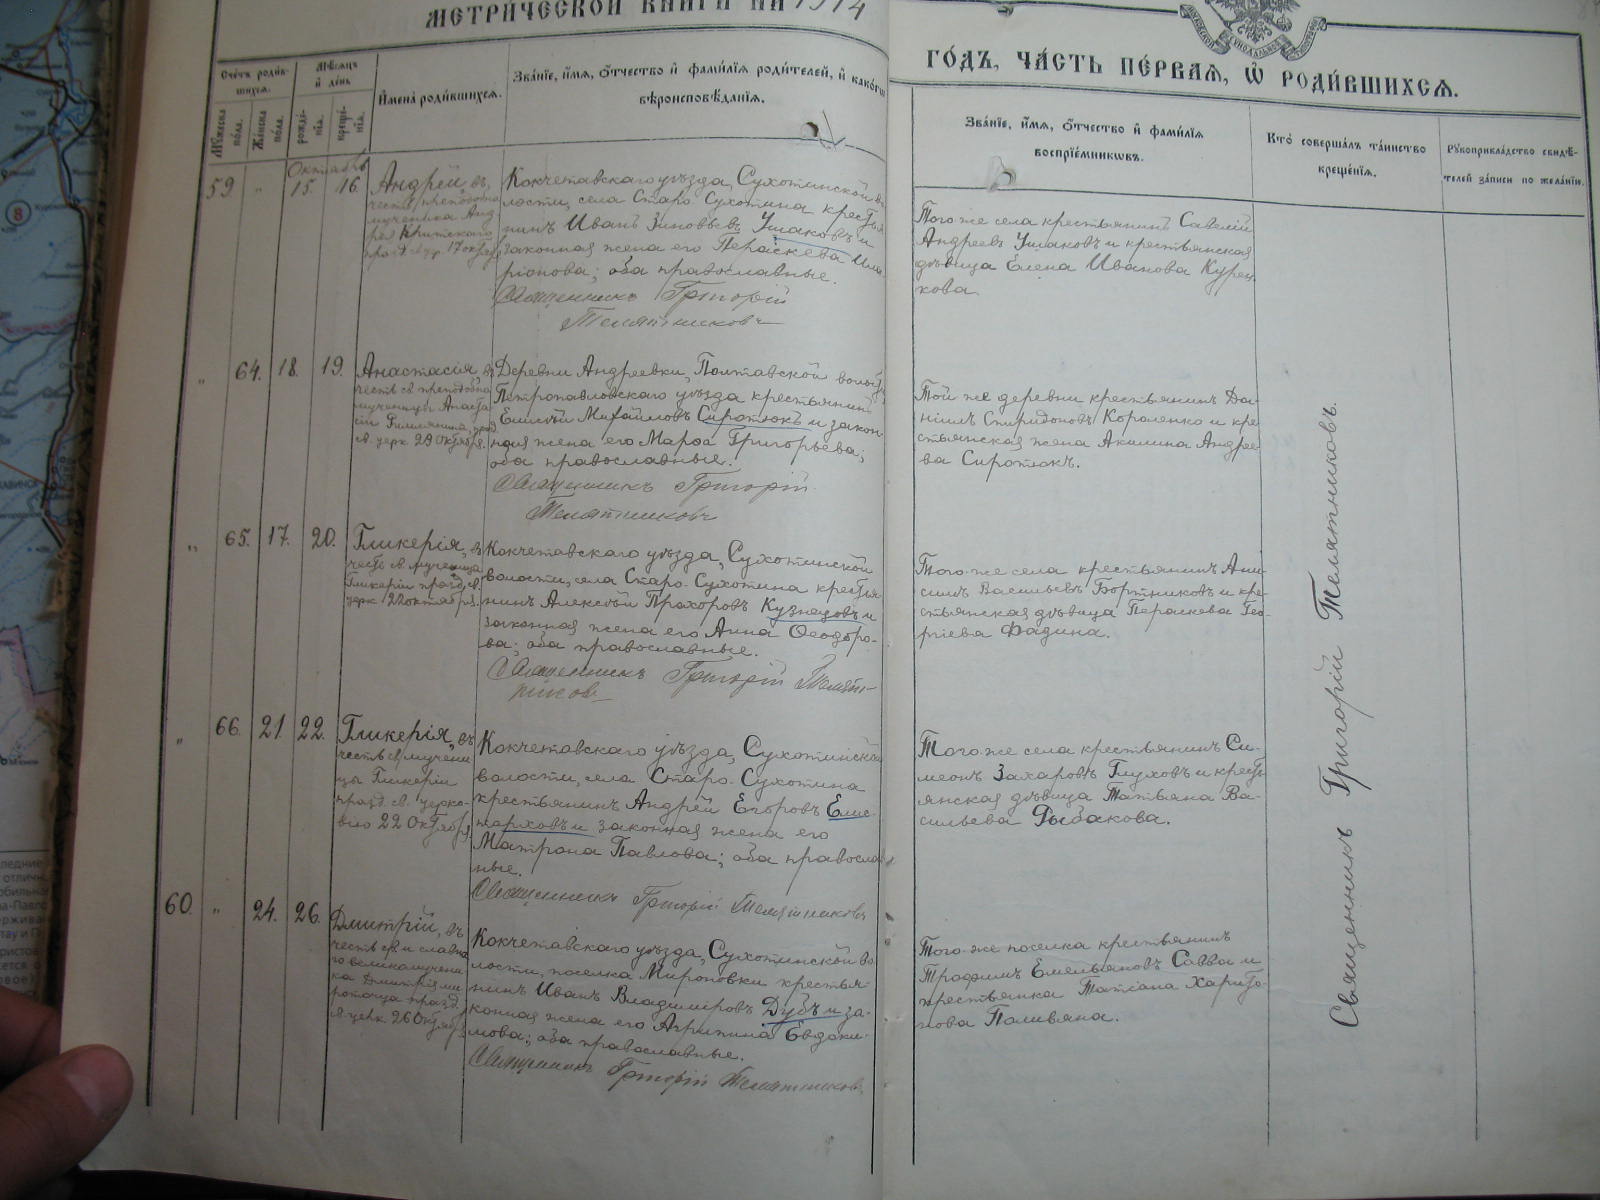 МЕТРИЧЕСКОЙ КНИГИ НА 1914
ГОДЪ, ЧАСТЬ ПЕРВАЯ, Ѡ РОДИВШИХСЯ.
Счетъ родив-
шихся.
Мужеска
пола.
Женска
пола.
Мѣсяцъ
и день
рожде-
нія.
креще-
нія.
Имена родившихся.
Званіе, имя, отчество и фамилія родителей, и какого
вѣроисповѣданія.
Званіе, имя, отчество и фамилія
воспріемниковъ.
Кто совершалъ таинство
крещенія.
Рукоприкладство свидѣ-
телей записи по желанію.
Октябрь
59 " 15. 16.
Андрей, въ
честь преподобно
мученика Анд
рея Критскаго
празд. 17 октября
Кокчетавскаго уѣзда, Сухотинской во
лости, села Старо-Сухотина кресть
нинъ Иванъ Зиновьевъ Ушаковъ и
законная жена его Параскева Ила
ріонова; оба православные.
Священникъ Григорій
Телятниковъ
Того-же села крестьянинъ Савелій
Андреевъ Ушаковъ и крестьянская
дѣвица Елена Иванова Курец
кова.
" 64. 18. 19.
Анастасія, въ
честь св. преподобно
мученицы Анаста
сіи Римляныни, празд
св. церк. 29 Октября.
Деревни Андреевки, Полтавской волости
Петропавловскаго уѣзда крестьянинъ
Емилій Михайловъ Сиротюкъ и закон
ная жена его Марѳа Григорьева;
оба православные.
Священникъ Григорій
Телятниковъ
Той-же деревни крестьянинъ Да-
ніилъ Спиридоновъ Короленко и кре
стьянская жена Акилина Андрее
ва Сиротюкъ.
" 65. 17. 20.
Гликерія, въ
честь св. мученицы
Гликеріи празд. св.
церк. 22 октября.
Кокчетавскаго уѣзда, Сухотинской
волости, села Старо-Сухотина крестья
нинъ Алексѣй Прохоровъ Кузнецовъ и
законная жена его Анна Ѳеодоро-
ва; оба православные.
Священникъ Григорій Телят-
никовъ
Того-же села крестьянинъ Ани-
симъ Васильевъ Бортниковъ и кре
стьянская дѣвица Параскева Гео
ргіева Фадина.
" 66. 21. 22.
Гликерія, въ
честь св. мучени
цы Гликеріи
празд. св. церко-
вію 22 Октября
Кокчетавскаго уѣзда, Сухотинской
волости, села Старо-Сухотина
крестьянинъ Андрей Егоровъ
и законная жена его
Матрона Павлова; оба православ
ные.
Священникъ Григорій Телятниковъ
Того-же села крестьянинъ Си-
меонъ Захаровъ Глуховъ и кресть
янская дѣвица Татьяна Ва-
сильева Рыбакова.
60. " 24. 26.
Дмитрій, въ
честь св. и славна
го великомучени
ка Димитрія ми
роточца празд.
св. церк. 26 Октября
Кокчетавскаго уѣзда, Сухотинской во
лости, поселка Мироновки крестья-
нинъ Иванъ Владиміровъ Дубъ и за-
конная жена его Агрипина Евдоки-
мова; оба православные.
Священникъ Григорій Телятниковъ
Того-же поселка крестьянинъ
Трофимъ Емельяновъ Савва и
крестьянка Татіана Харито-
нова Поливяна.
Священникъ Григорій Телятниковъ.